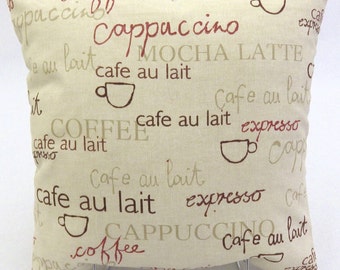 cappuccino
MOCHA LATTE
cafe au lait
cafe au lait
cafe au lait
COFFEE
expresso
cafe au lait
cafe au lait
cafe au lait
expresso
CAPPUCCINO
cafe au lait
coffee